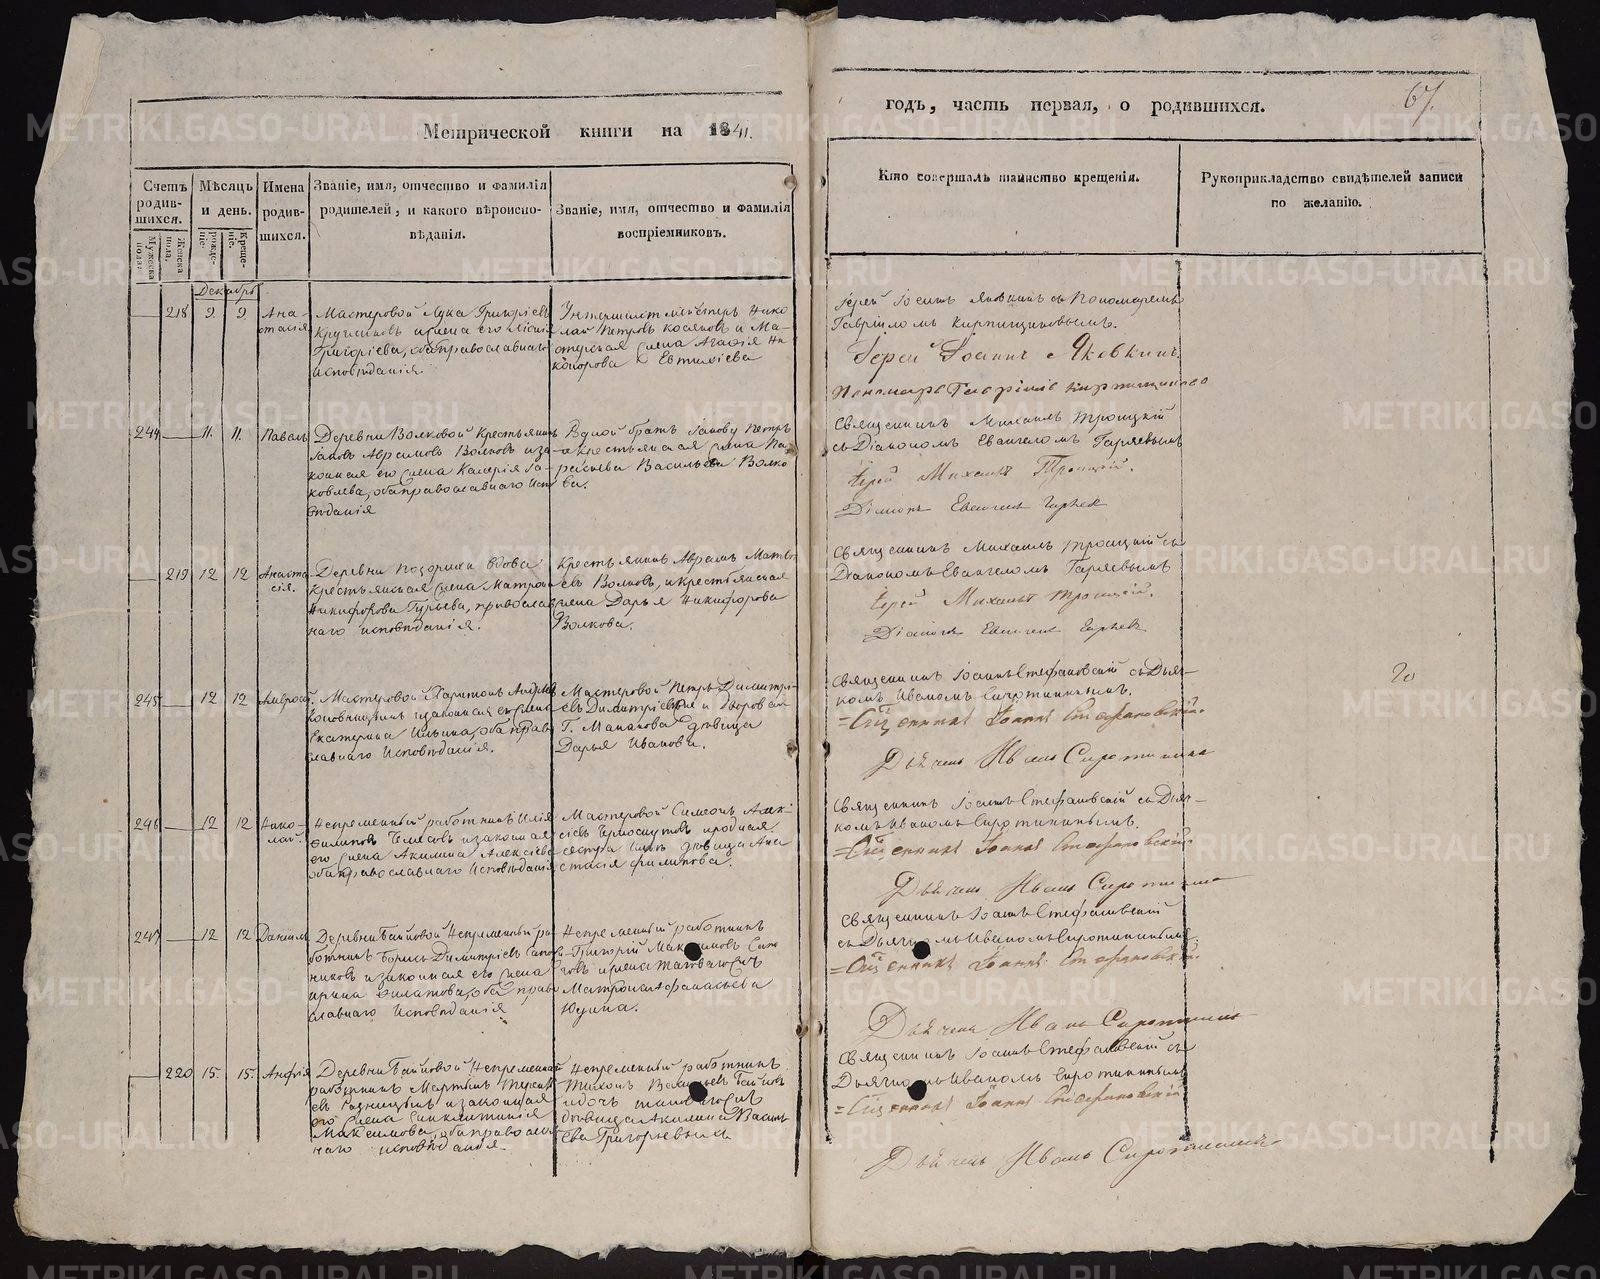 Метрической книги на 1841.
годъ, часть первая, о родившихся.
67.
Счетъ родив-
шихся.
Мужеска
пола.
Женска
пола.
Мѣсяцъ
и день.
рожде-
нія.
Креще-
нія.
Имена
родив-
шихся.
Званіе, имя, отчество и фамилія
родителей, и какого вѣроиспо-
вѣданія.
Званіе, имя, отчество и фамилія
воспріемниковъ.
Кто совершалъ таинство крещенія.
Рукоприкладство свидѣтелей записи
по желанію.
Декабрь
218 9. 9. Ана-
стасія
Мастеровой Лука Григорьевъ
Григоріева, оба православнаго
исповѣданія.
Петровъ и Ма-
стерская жена Агафія Ни-
Евтихіева
Іерей Іоаннъ Яковкинъ съ Пономаремъ
Гавріиломъ Кирпищиковымъ.
Іерей Іоаннъ Яковкинъ.
Пономарь Гавріилъ Кирпищиковъ
244 11. 11. Павелъ
Деревни Волковой Крестьянинъ
Іаковъ Аврамовъ Волковъ и за-
конная его жена Валерія Іа-
ковлева, оба православнаго испо-
вѣданія
Родной братъ Іаковъ Петръ
и крестьянская жена Па-
расьева Васильева Волко-
ва.
Священникъ Михаилъ Троицкій
съ Діакономъ Евангеломъ Гаряевымъ
Іерей Михаилъ Троицкій.
Діаконъ Евангелъ Гаряевъ
219 12 12 Анаста-
сія.
Деревни вдова
Крестьянская жена Матрона
Никифорова Гурьева, православ-
наго исповѣданія.
Крестьянинъ Аврамъ Матвѣ-
евъ Волковъ, и крестьянская
жена Дарья Никифорова
Волкова.
Священникъ Михаилъ Троицкій съ
Діакономъ Евангеломъ Гаряевымъ
Іерей Михаилъ Троицкій.
Діаконъ Евангелъ Гаряевъ
245 12 12 Амвросій.
Мастеровой Харитонъ Андреевъ
и законная его жена
Екатерина Ильина, оба право-
славнаго Исповѣданія.
Мастеровой Петръ Димитрі-
евъ и дворовая
Г. дѣвица
Дарья Иванова.
Священникъ Іоаннъ Стефановскій съ Дьяч-
комъ Иваномъ Сиротининымъ.
=Священникъ Іоаннъ Стефановскій.
Дьячекъ Иванъ Сиротининъ
20
246 12 12 Нико-
лай.
Непременный работникъ Илія
Филиповъ и законная
его жена Акилина Алексѣева
оба православнаго Исповѣданія
Мастеровой Симеонъ Алек-
сѣевъ и родная
сестра дѣвица Ана-
стасія Филипова.
Священникъ Іоаннъ Стефановскій съ Дьяч-
комъ Иваномъ Сиротининымъ.
=Священникъ Іоаннъ Стефановскій
Дьячекъ Иванъ Сиротининъ
247 12 12 Даніилъ
Деревни Байновой Непременный ра-
ботникъ Борисъ Димитріевъ
и законная его жена
Ирина Филатова, оба право-
славнаго Исповѣданія
Непременный работникъ
Григорій Максимовъ
и жена таковагожъ
Матрона Афанасьева
Юдина.
Священникъ Іоаннъ Стефановскій
съ Дьячкомъ Иваномъ Сиротининымъ
=Священникъ Іоаннъ Стефановскій
Дьячекъ Иванъ Сиротининъ
220 15. 15. Анфія
Деревни Байновой Непременной
работникъ Мартынъ
и законная
его жена Синклитикія
Максимова, оба православ-
наго исповѣданія
Непременный работникъ
Тихонъ Васильевъ Байновъ
и дочь таковагожъ
дѣвица Акилина Василь-
ева Григорьевыхъ
Священникъ Іоаннъ Стефановскій съ
Дьячкомъ Иваномъ Сиротининымъ
=Священникъ Іоаннъ Стефановскій
Дьячекъ Иванъ Сиротининъ
METRIKI.GASO-URAL.RU